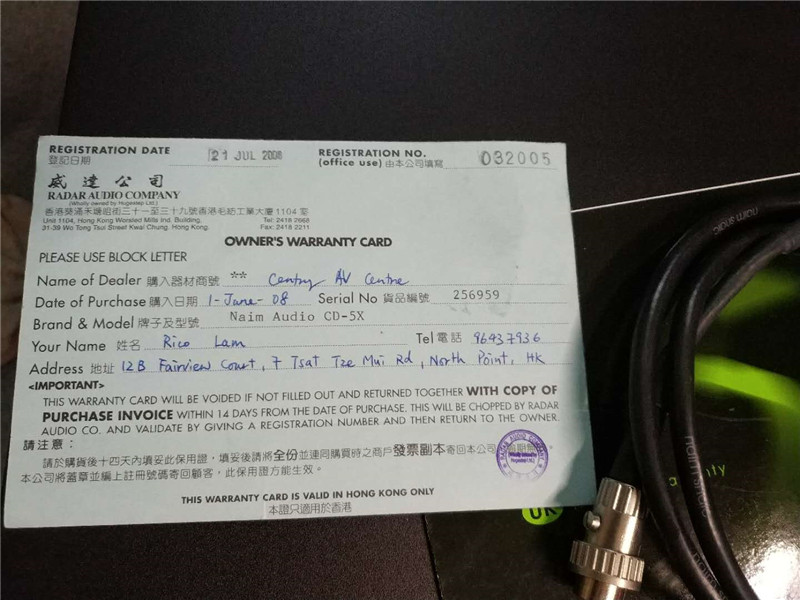 REGISTRATION DATE 21 JUL 2008 REGISTRATION NO. 032005
登記日期 (office use) 由本公司填寫
威達公司
RADAR AUDIO COMPANY
(Wholly owned by Hugestep Ltd.)
香港葵涌禾塘咀街三十一至三十九號香港毛紡工業大廈1104室
Unit 1104, Hong Kong Worsted Mills Ind. Building, Tel: 2418 2668
31-39 Wo Tong Tsui Street Kwai Chung, Hong Kong. Fax: 2418 2211
OWNER'S WARRANTY CARD
PLEASE USE BLOCK LETTER
Name of Dealer 購入器材商號 ** Century AV Centre
Date of Purchase 購入日期 1-June-08 Serial No 貨品編號 256959
Brand & Model 牌子及型號 Naim Audio CD-5X
Your Name 姓名 Rico Lam Tel 電話 96437936
Address 地址 12B Fairview Court, 7 Tsat Tze Mui Rd, North Point, HK
<IMPORTANT>
THIS WARRANTY CARD WILL BE VOIDED IF NOT FILLED OUT AND RETURNED TOGETHER WITH COPY OF
PURCHASE INVOICE WITHIN 14 DAYS FROM THE DATE OF PURCHASE. THIS WILL BE CHOPPED BY RADAR
AUDIO CO. AND VALIDATE BY GIVING A REGISTRATION NUMBER AND THEN RETURN TO THE OWNER.
請注意：
請於購貨後十四天內填妥此保用證，填妥後請將全份並連同購買時之商戶發票副本寄回本公司
本公司將蓋章並編上註冊號碼寄回顧客，此保用證方能生效。
THIS WARRANTY CARD IS VALID IN HONG KONG ONLY
本證只適用於香港
RADAR AUDIO COMPANY
naim snaic
naim snaic
naim
UK